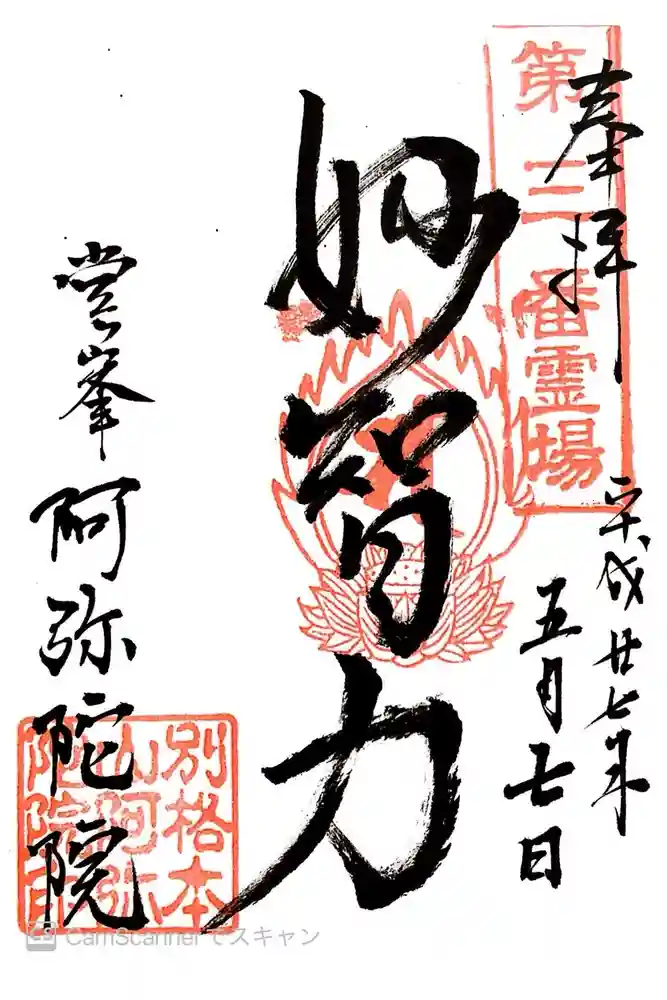 奉拝
第三番霊場
平成廿七年
五月七日
妙智力
峯 阿弥陀院
別格本
山阿弥
陀院印
CamScannerでスキャン